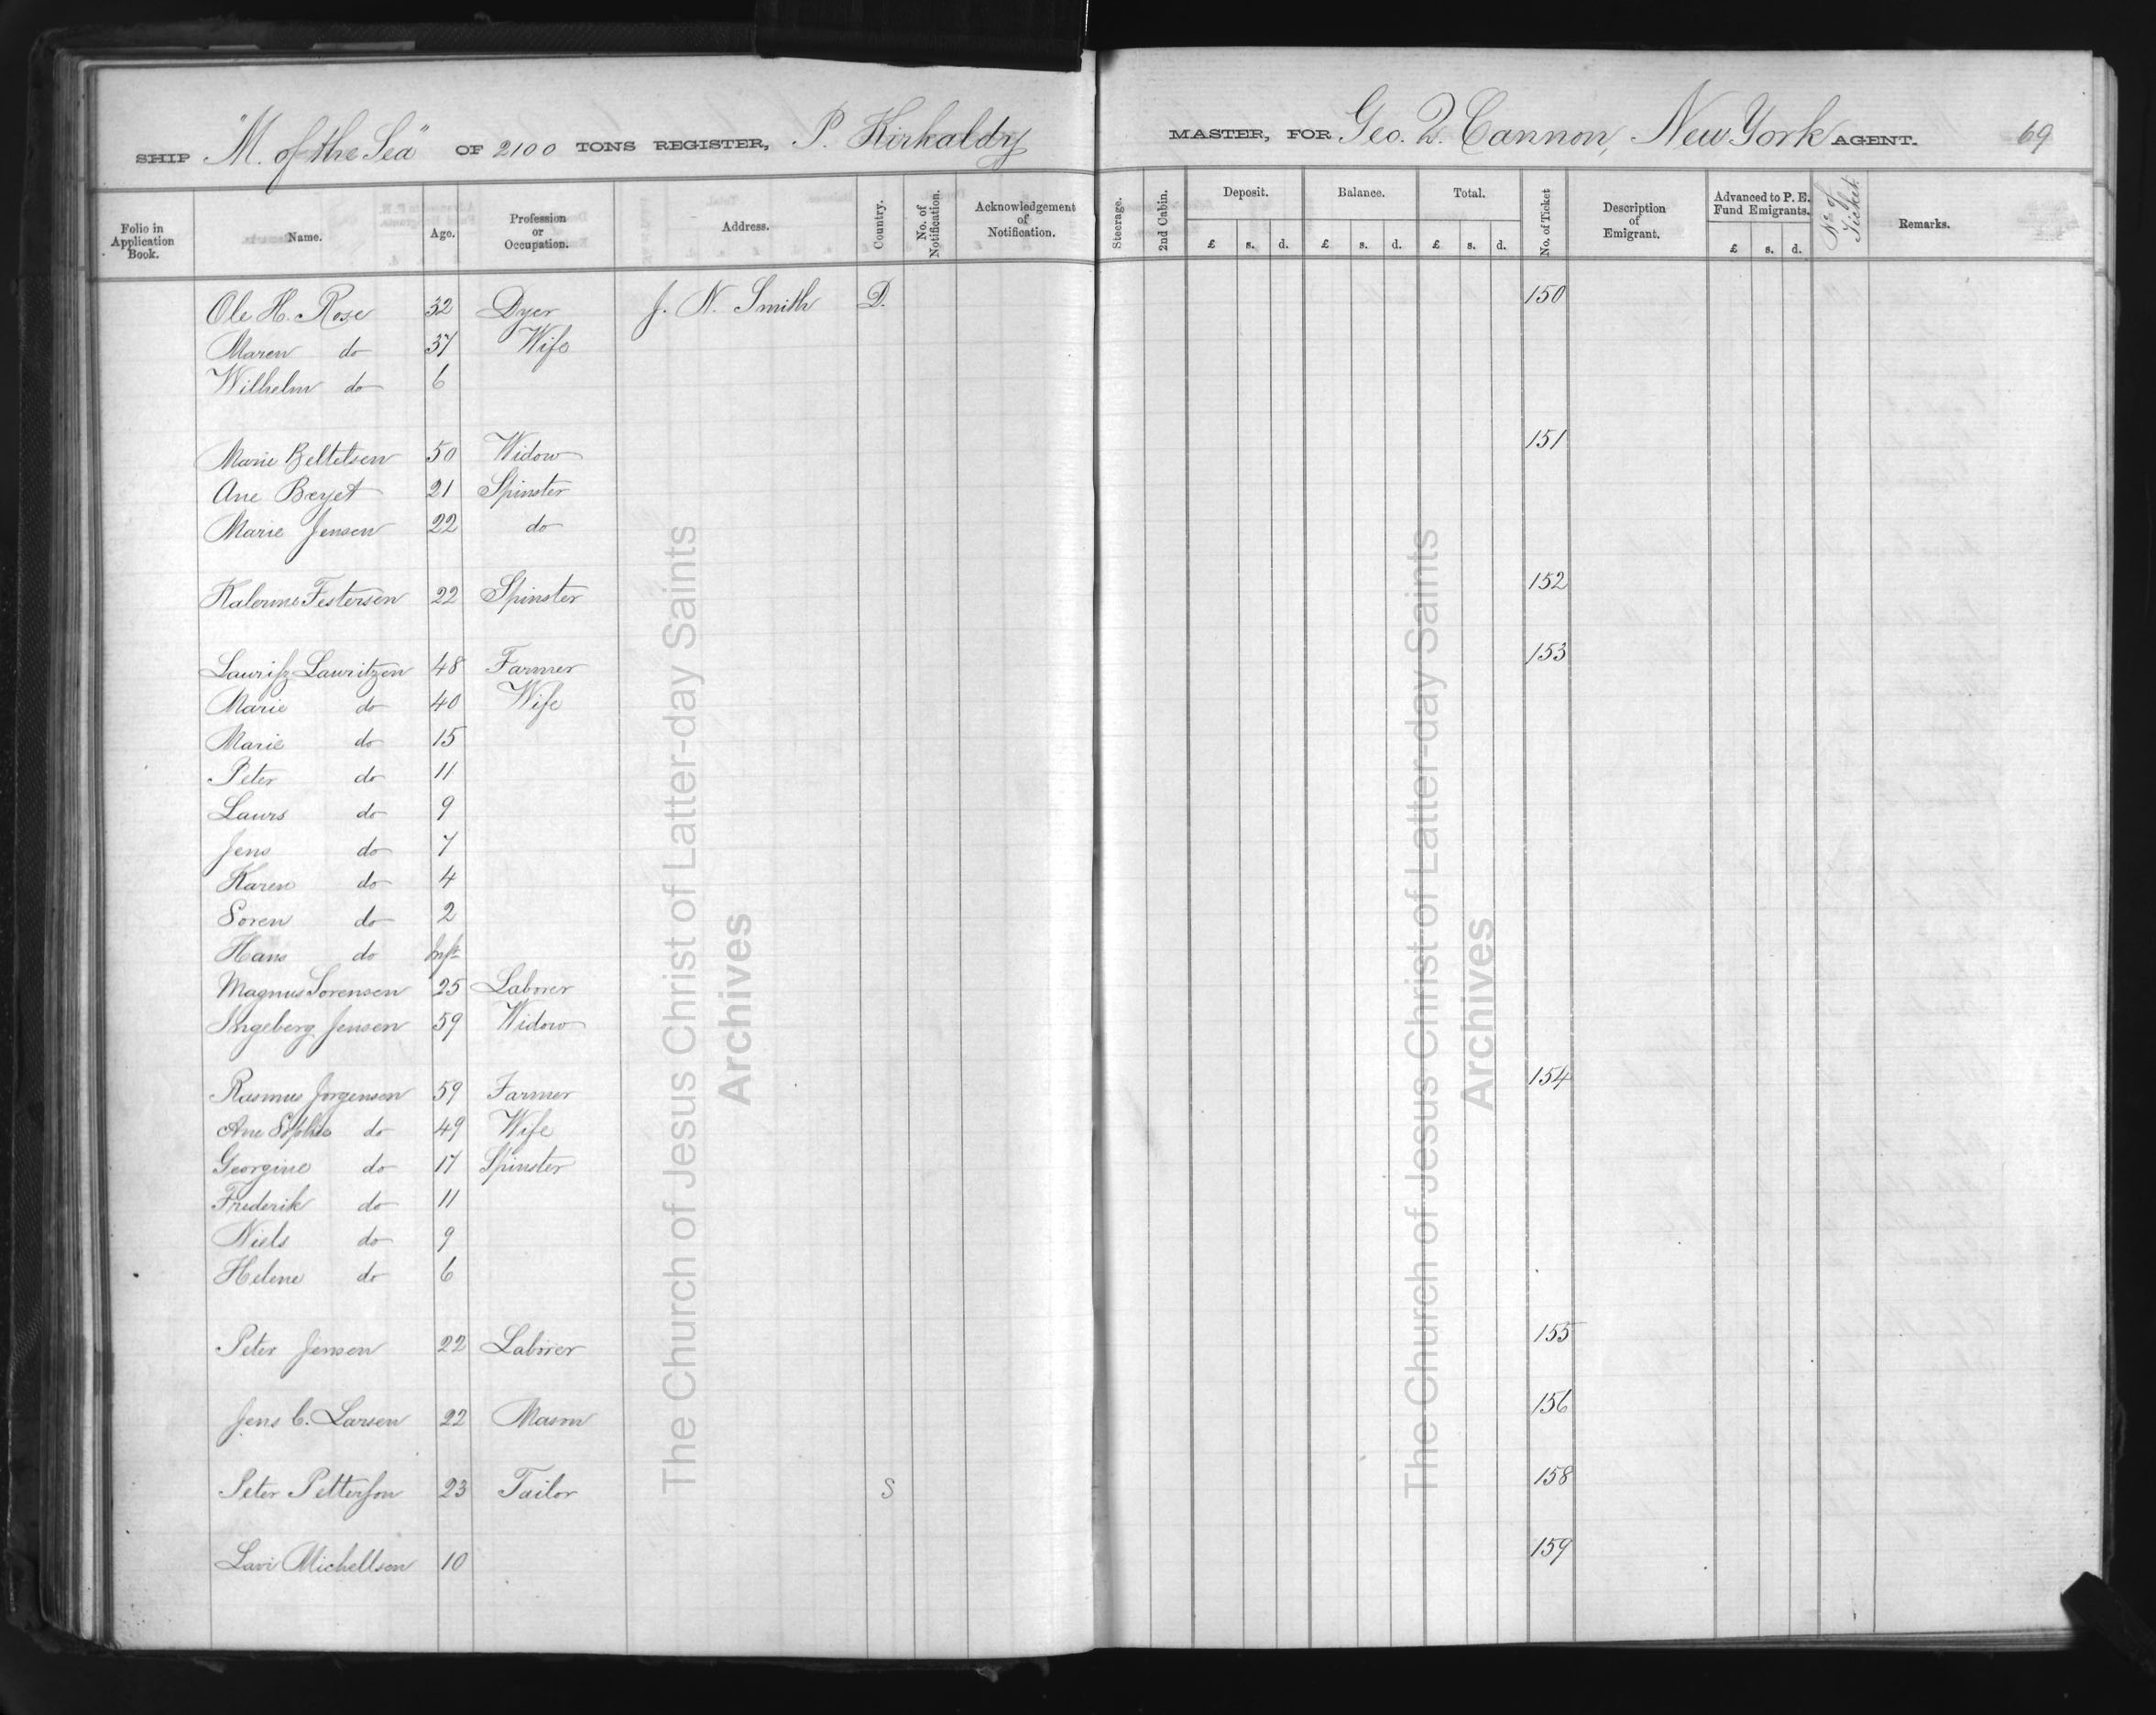 SHIP "M. of the Sea" OF 2100 TONS REGISTER, P. Kirkaldy MASTER, FOR Geo. Q. Cannon, New York AGENT. 69
Folio in Application Book. Name. Age. Profession or Occupation. Address. Country. No. of Notification. Acknowledgement of Notification. Steerage. 2nd Cabin. Deposit. Balance. Total. No. of Ticket Description of Emigrant. Advanced to P. E. Fund Emigrants. No. of Ticket. Remarks.
£ s. d. £ s. d. £ s. d. £ s. d.
Ole H. Rose 32 Dyer J. N. Smith D. 150
Maren do 37 Wife
Wilhelm do 6
Marie Beltelsen 50 Widow 151
Ane Beryet 21 Spinster
Marie Jensen 22 do
Katerine Festersen 22 Spinster 152
Lauritz Lauritzen 48 Farmer 153
Marie do 40 Wife
Marie do 15
Peter do 11
Laurs do 9
Jens do 7
Karen do 4
Soren do 2
Hans do Inft
Magnus Sorensen 25 Laborer
Ingeberg Jensen 59 Widow
Rasmus Jorgensen 59 Farmer 154
Ane Sophie do 49 Wife
Georgine do 17 Spinster
Frederik do 11
Niels do 9
Helene do 6
Peter Jensen 22 Laborer 155
Jens C. Larsen 22 Mason 156
Peter Petterson 23 Tailor S 158
Lavi Michellson 10 159
The Church of Jesus Christ of Latter-day Saints
Archives
The Church of Jesus Christ of Latter-day Saints
Archives